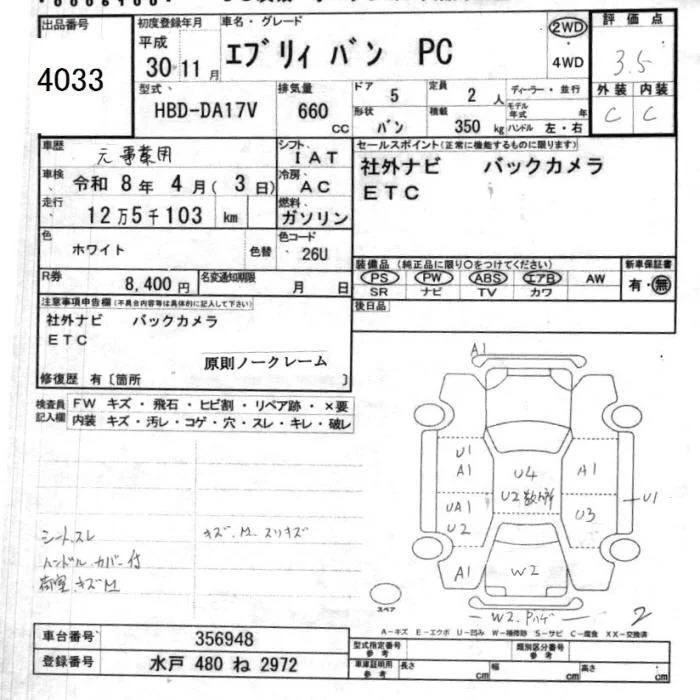 出品番号
4033
初度登録年月
平成
30年11月
車名・グレード
エブリィ バン PC
2WD
・
4WD
評価点
3.5
外装 内装
C C
型式、
HBD-DA17V
排気量
660
CC
ドア
5
定員
2人
ディーラー・並行
形状
バン
積載
350kg
モデル年式 年
ハンドル 左・右
車歴
元事業用
シフト、
IAT
セールスポイント(正常に機能するものに限ります)
社外ナビ バックカメラ
ETC
車検、
令和 8年 4月( 3日)
冷房、
AC
走行
12万5千103 km
燃料、
ガソリン
色
ホワイト
色替
色コード
26U
R券
8,400円
名変通知期限
月 日
装備品(純正品に限り〇をつけてください)
PS PW ABS エアB AW
SR ナビ TV カワ
新車保証書
有・無
後日品
注意事項申告欄(不具合内容等は具体的に記入して下さい)
社外ナビ バックカメラ
ETC
原則ノークレーム
修復歴 有〔箇所 〕
検査員記入欄
FW キズ・飛石・ヒビ割・リペア跡・×要
内装 キズ・汚レ・コゲ・穴・スレ・キレ・破レ
シートスレ
キズ.M スリキズ
ハンドルカバー付
荷室キズM
A1
U1
A1
U4
A1
U2数ヶ所
UA1
U2
U3
U1
A1
W2
W2.Pハゲ
2
スペア
A－キズ E－エクボ U－凹み W－補修跡 S－サビ C－腐食 XX－交換済
車台番号
356948
登録番号
水戸 480 ね 2972
型式指定番号
参考
類別区分番号
参考
車庫証明用
参考
長さ cm
幅 cm
高さ cm